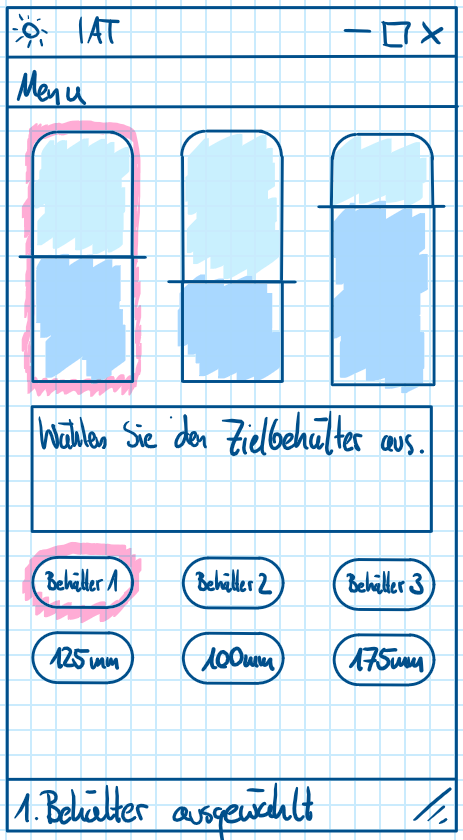 IAT
Menu
Wählen Sie den Zielbehälter aus.
Behälter 1 Behälter 2 Behälter 3
125mm 100mm 175mm
1. Behälter ausgewählt